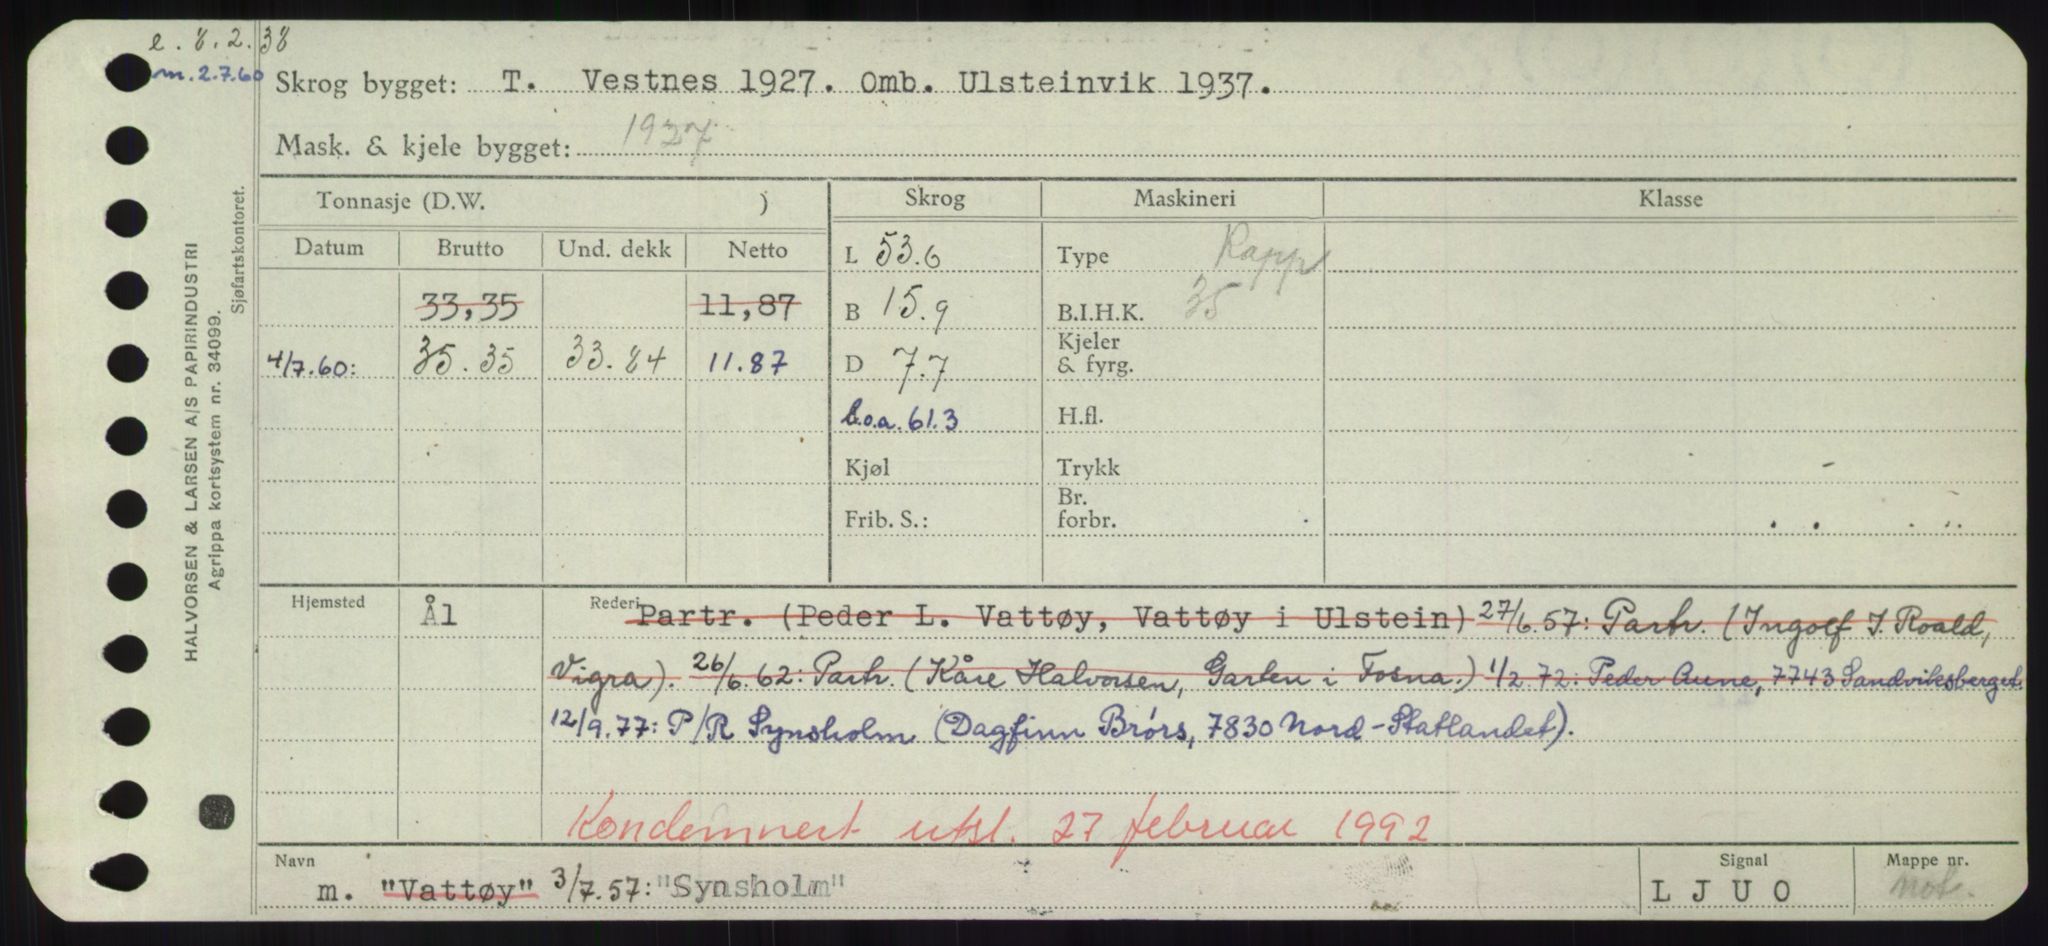 e. 8.2.38
m. 2.7.60
Skrog bygget: T. Vestnes 1927. Omb. Ulsteinvik 1937.
Mask. & kjele bygget: 1927
HALVORSEN & LARSEN A/S PAPIRINDUSTRI
Agrippa kortsystem nr. 34099.
Sjøfartskontoret.
Tonnasje (D.W. ) Skrog Maskineri Klasse
Datum Brutto Und. dekk Netto
L 53.6 Type Rapp
33,35 11,87 B 15.9 B.I.H.K. 35
4/7.60: 35.35 33.84 11.87 D 7.7 Kjeler & fyrg.
l.o.a. 61.3 H.fl.
Kjøl Trykk
Frib. S.: Br. forbr.
Hjemsted Ål Rederi Partr. (Peder L. Vattøy, Vattøy i Ulstein) 27/6.57: Partr. (Ingolf J. Roald,
Vigra). 26/6.62: Partr. (Kåre Halvorsen, Garten i Fosna.) 1/2 72: Peder Aune, 7743 Sandviksberget.
12/9.77: P/R Synsholm (Dagfinn Brørs, 7830 Nord-Statlandet).
Kondemnert utsl. 27 februar 1992
Navn Signal Mappe nr.
m. "Vattøy" 3/7.57: "Synsholm" LJUO not.